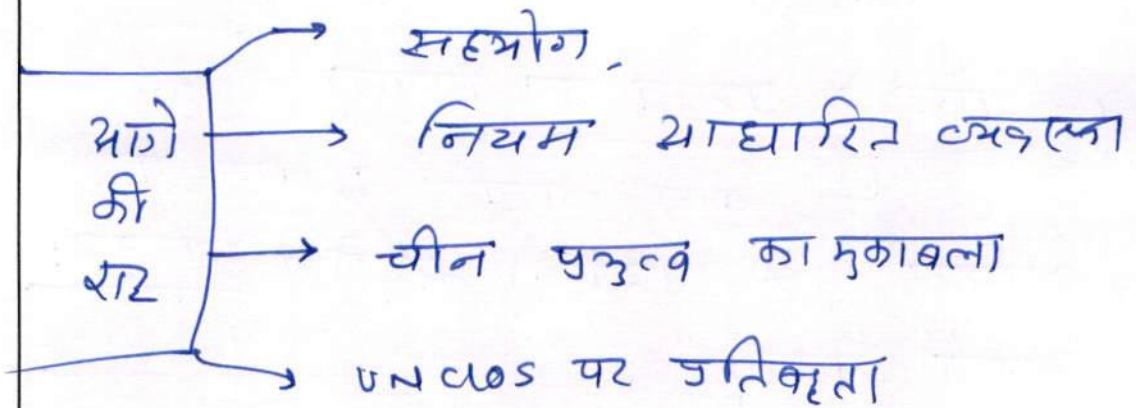 सहयोग,
आगे
की
राह
नियम आधारित व्यवस्था
चीन प्रभुत्व का मुकाबला
UNCLOS पर प्रतिबद्धता